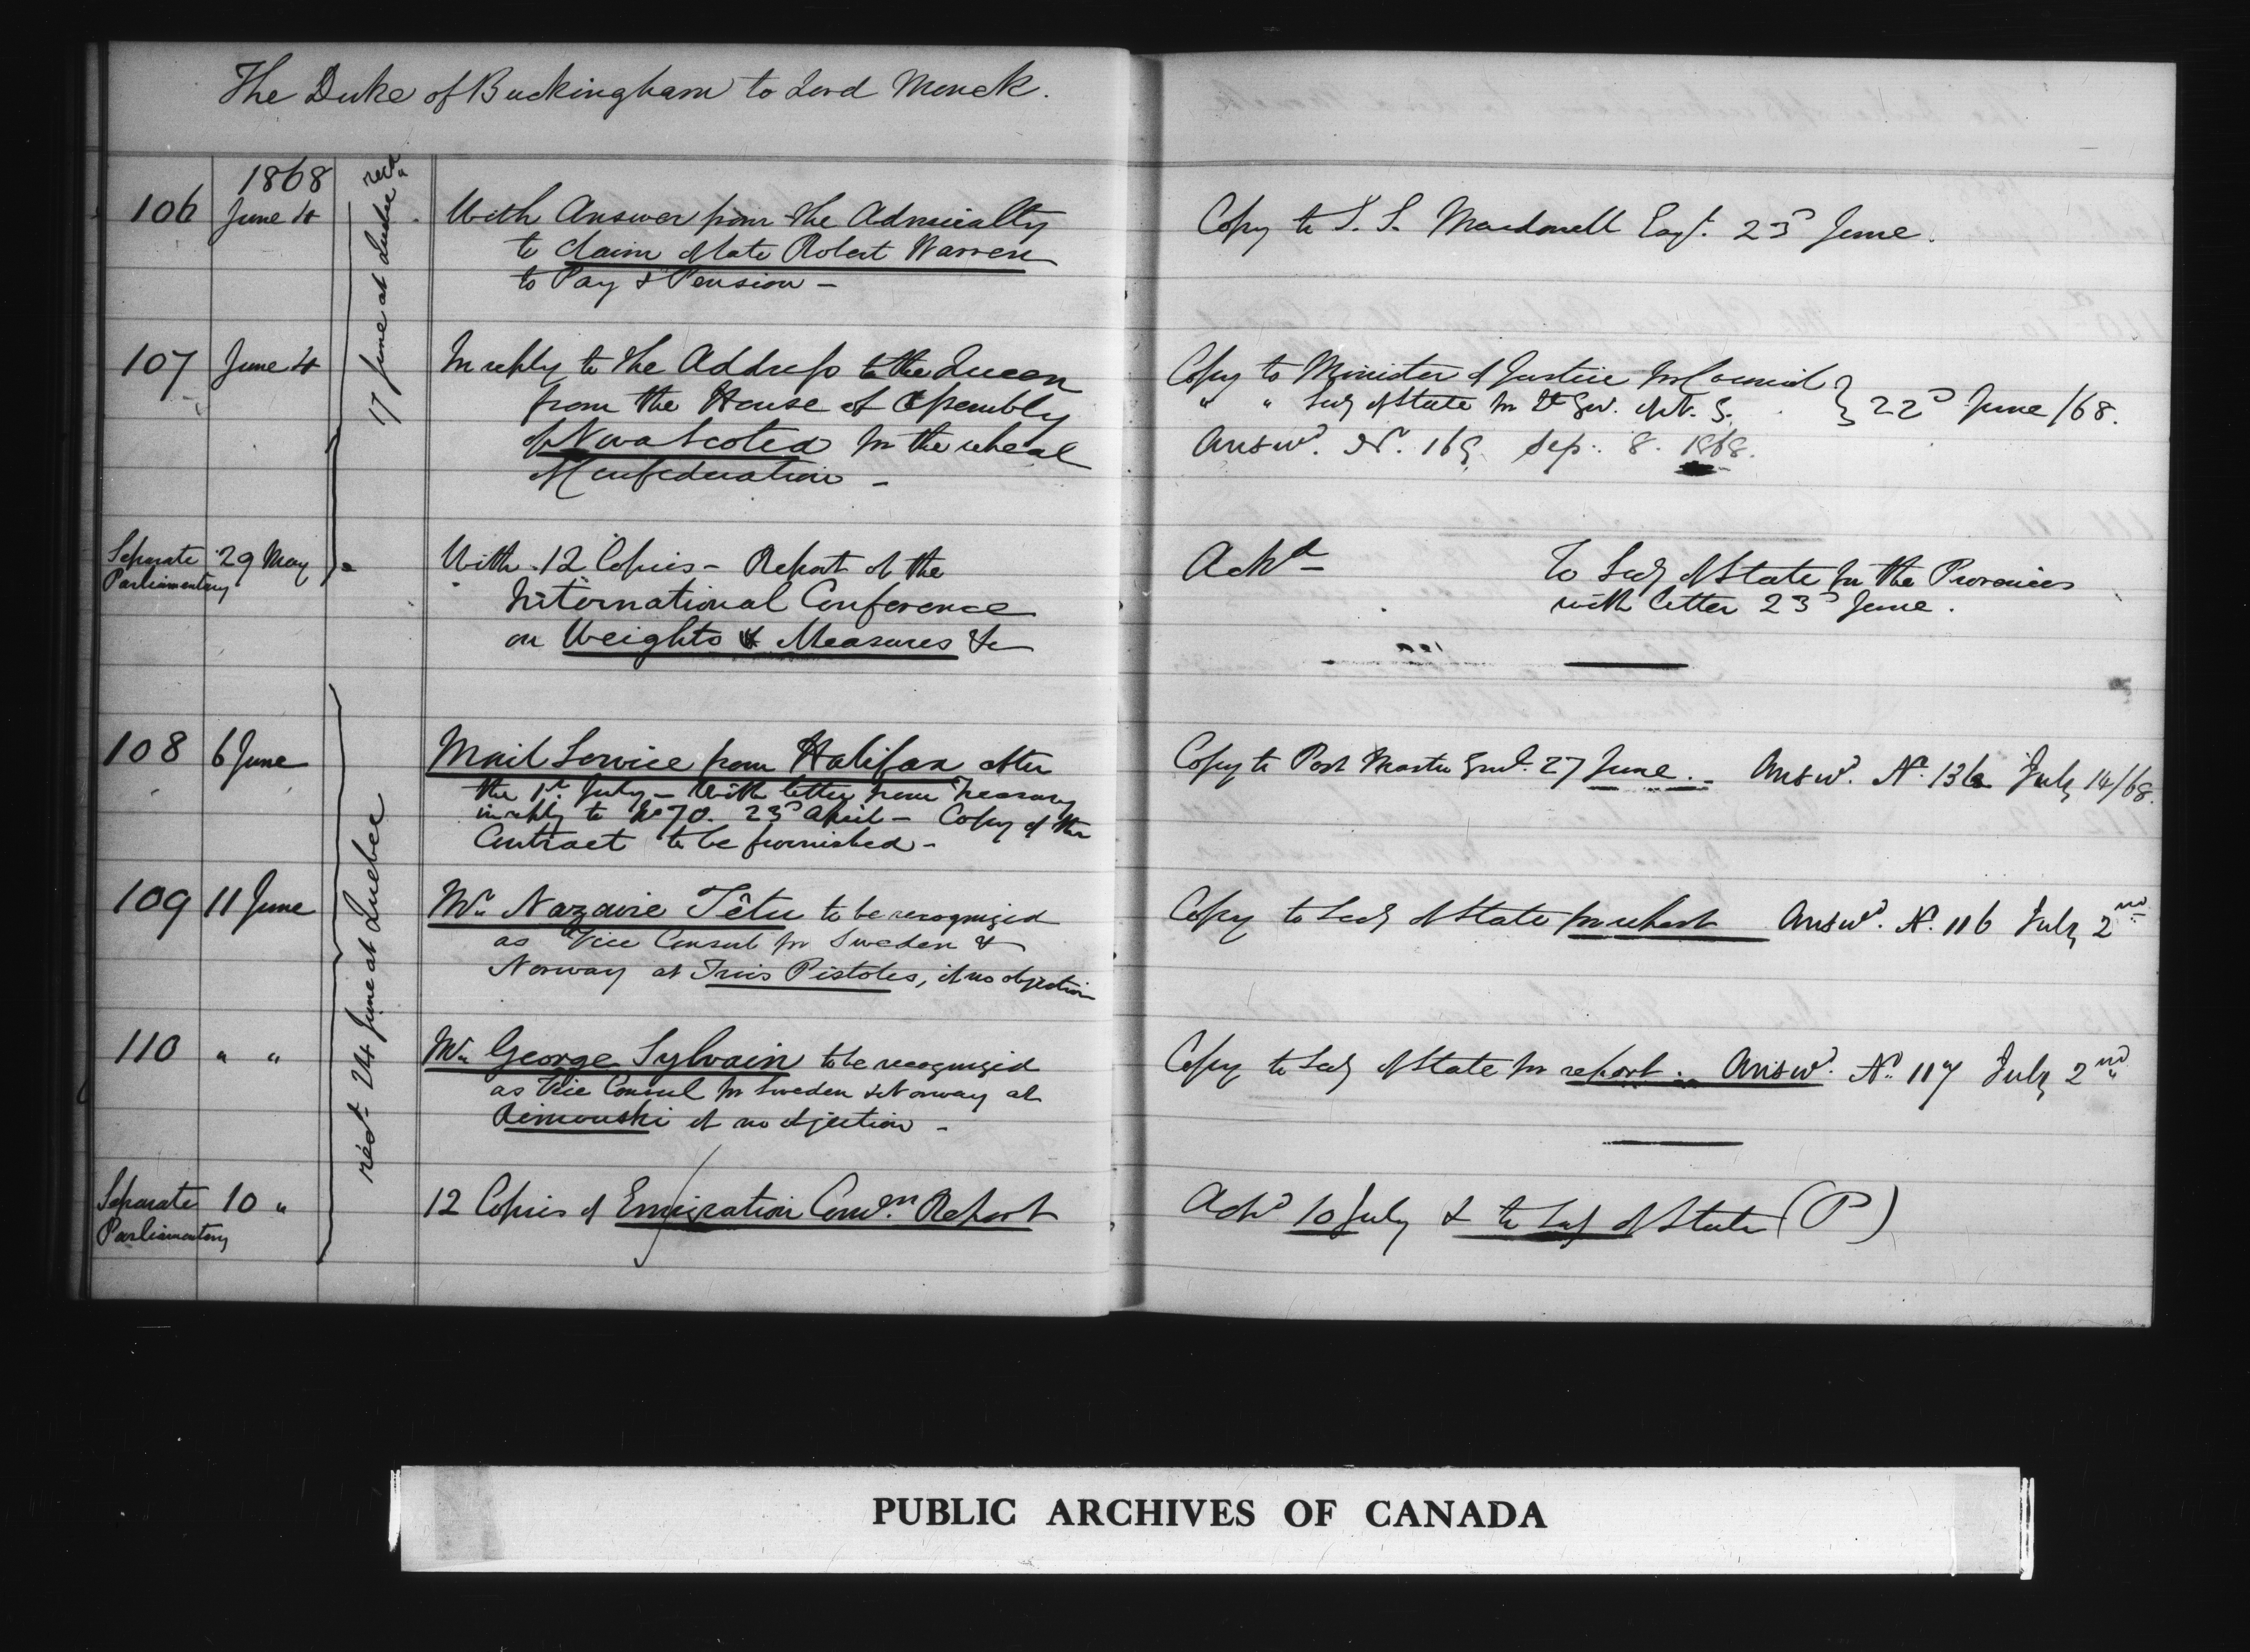 The Duke of Buckingham to Lord Monck.
1868
106 June 4 With Answer from the Admiralty
to claim of late Robert Warren
to Pay & Pension –
Copy to S. S. Macdonell Esqr. 23d June.
recd. 17 June at Quebec
107 June 4 In reply to the Address to the Queen
from the House of Assembly
of Nova Scotia for the repeal
of Confederation –
Copy to Minister of Justice for Council
" " Secy of State for Lt Gov. of N. S. } 22d June /68.
Answd. No. 169 Sep. 8. 1868.
Separate Parliamentary 29 May With 12 Copies – Report of the
International Conference
on Weights & Measures &c
Ackd
To Secy of State for the Provinces
with letter 23d June.
108 6 June Mail Service from Halifax after
the 1st July – With letter from Treasury
in reply to No 70. 23d April – Copy of the
Contract to be furnished –
Copy to Post Master Genl. 27 June. – Answd. No. 136 July 14/68.
recd. 24 June at Quebec
109 11 June Mr. Nazaire Têtu to be recognized
as Vice Consul for Sweden &
Norway at Trois Pistoles, if no objection
Copy to Secy of State for report Answd. No. 116 July 2nd
110 " " Mr. George Sylvain to be recognized
as Vice Consul for Sweden & Norway at
Rimouski if no objection –
Copy to Secy of State for report. – Answd. No. 117 July 2nd
Separate Parliamentary 10 " 12 Copies of Emigration Comrn. Report
Ackd 10 July & to Secy of State (P)
PUBLIC ARCHIVES OF CANADA